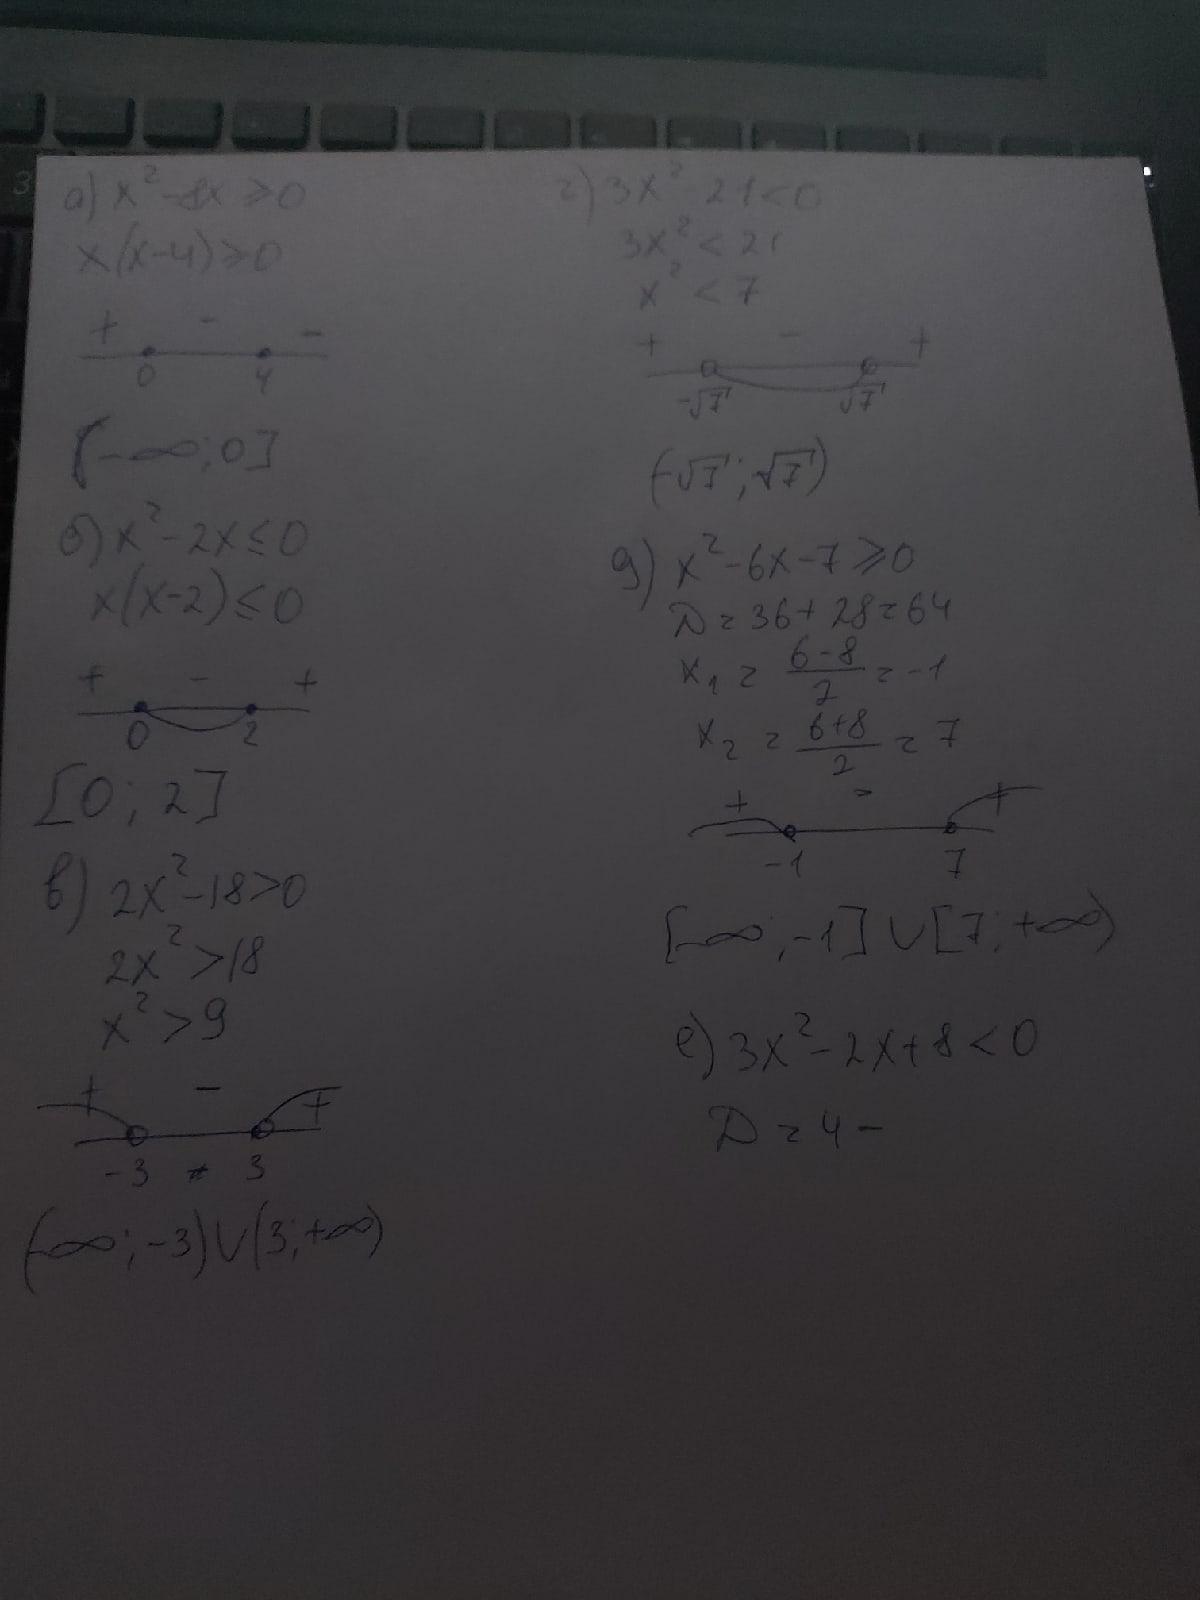 а) x² - 8x ≥ 0
x(x-4) ≥ 0
+ - -
0 4
(-∞; 0]
б) x² - 2x ≤ 0
x(x-2) ≤ 0
+ - +
0 2
[0; 2]
в) 2x² - 18 > 0
2x² > 18
x² > 9
+ - +
-3 3
(-∞; -3) ∪ (3; +∞)
г) 3x² - 21 < 0
3x² < 21
x² < 7
+ - +
-√7 √7
(-√7; √7)
д) x² - 6x - 7 ≥ 0
D = 36 + 28 = 64
x₁ = (6-8)/2 = -1
x₂ = (6+8)/2 = 7
+ - +
-1 7
[-∞; -1] ∪ [7; +∞)
е) 3x² - 2x + 8 < 0
D = 4 -